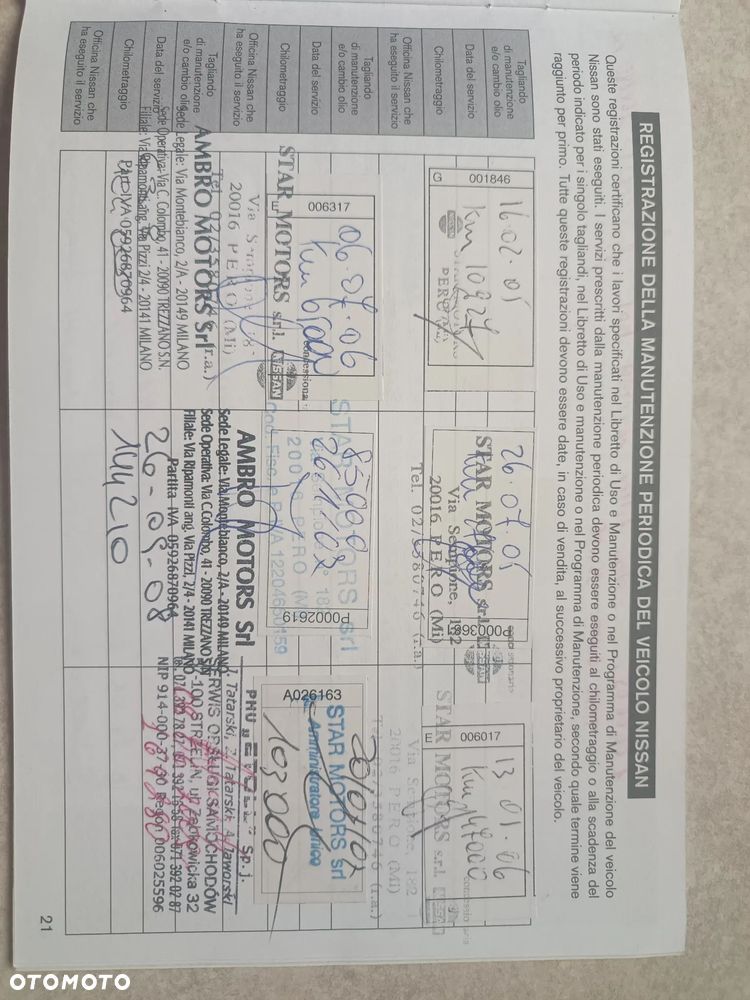 REGISTRAZIONE DELLA MANUTENZIONE PERIODICA DEL VEICOLO NISSAN
Queste registrazioni certificano che i lavori specificati nel Libretto di Uso e Manutenzione o nel Programma di Manutenzione del veicolo
Nissan sono stati eseguiti. I servizi prescritti dalla manutenzione periodica devono essere eseguiti al chilometraggio o alla scadenza del
periodo indicato per i singolo tagliandi, nel Libretto di Uso e manutenzione o nel Programma di Manutenzione, secondo quale termine viene
raggiunto per primo. Tutte queste registrazioni devono essere date, in caso di vendita, al successivo proprietario del veicolo.
Tagliando
di manutenzione
e/o cambio olio
Data del servizio
Chilometraggio
Officina Nissan che
ha eseguito il servizio
G 001846
16.02.05
Km 10227
PERO
26.07.05
STAR MOTORS s.r.l.
Via Sempione, 182
20016 PERO (Mi)
Tel. 02/3380746 (r.a.)
E 006017
13 01.06
STAR MOTORS s.r.l.
Via Sempione, 182
20016 PERO (Mi)
Tagliando
di manutenzione
e/o cambio olio
Data del servizio
Chilometraggio
Officina Nissan che
ha eseguito il servizio
E 006317
06.07.06
STAR MOTORS s.r.l.
NISSAN
20016 PERO (Mi)
P0002619
85000
STAR MOTORS srl
20016 PERO (MI)
A026163
20/07/07
STAR MOTORS srl
Amministratore Unico
103000
Tagliando
di manutenzione
e/o cambio olio
Data del servizio
Chilometraggio
Officina Nissan che
ha eseguito il servizio
AMBRO MOTORS Srl
Sede Legale: Via Montebianco, 2/A - 20149 MILANO
Sede Operativa: Via C. Colombo, 41 - 20090 TREZZANO S.N.
Filiale: Via Ripamonti ang. Via Pizzi, 2/4 - 20141 MILANO
Partita IVA 05926870964
AMBRO MOTORS Srl
Sede Legale: Via Montebianco, 2/A - 20149 MILANO
Sede Operativa: Via C. Colombo, 41 - 20090 TREZZANO S.N.
Filiale: Via Ripamonti ang. Via Pizzi, 2/4 - 20141 MILANO
Partita IVA 05926870964
26-05-08
144210
Sp. j.
J. Tatarski, Z. Tatarski, A. Jaworski
SERWIS OBSŁUGI SAMOCHODÓW
-100 STRZELIN, ul. Ząbkowicka 32
Regon 006025596
21
OTOMOTO